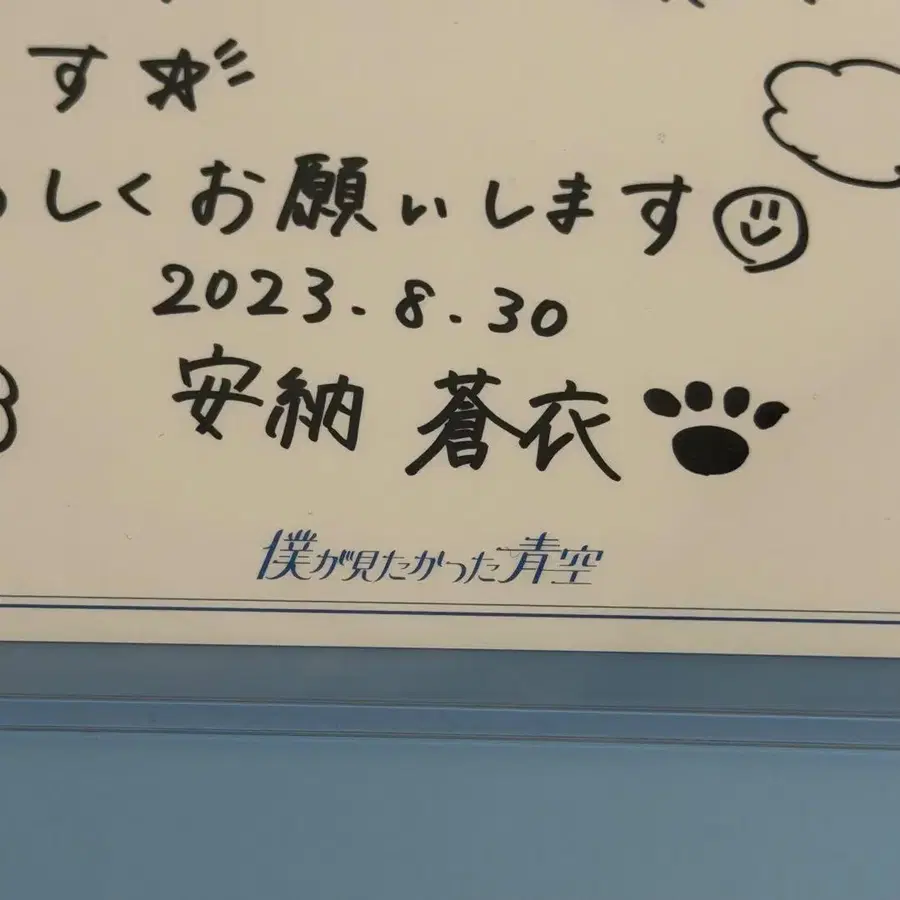 す
しくお願いします
2023.8.30
安納 蒼衣
僕が見たかった青空